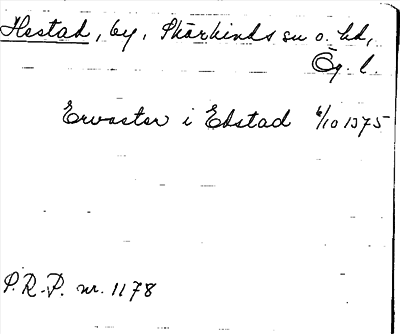 Hestad, by, Skärkinds sn o. hd,
Ög. l.
Ervaster i Edstad 6/10 1375
P.R.P. nr. 1178